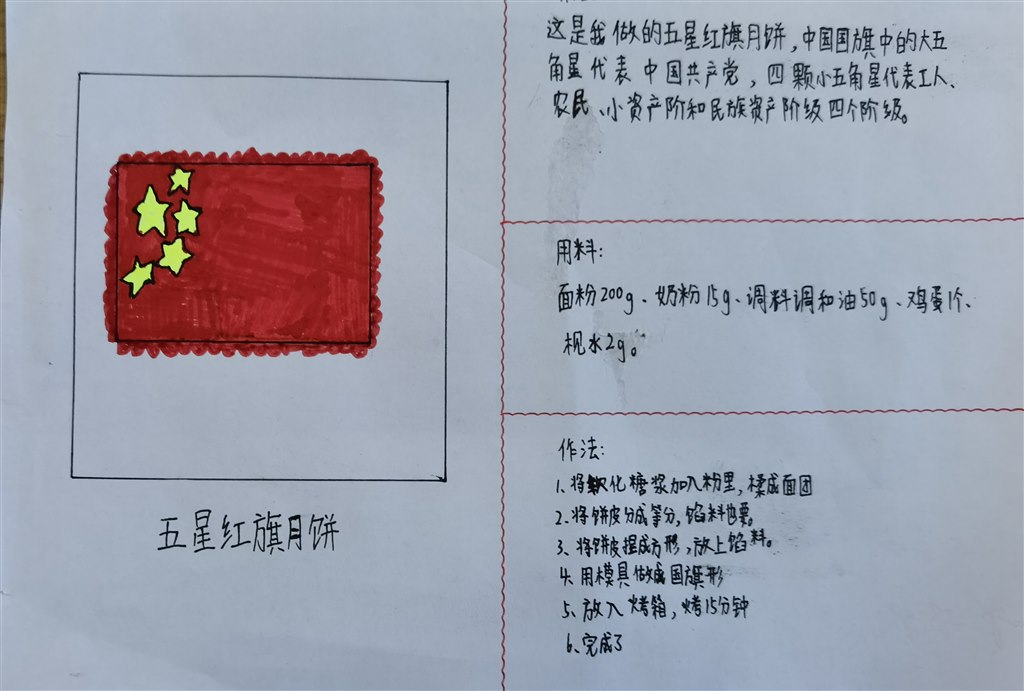 五星红旗月饼
这是我做的五星红旗月饼,中国国旗中的大五
角星代表中国共产党,四颗小五角星代表工人、
农民、小资产阶和民族资产阶级四个阶级。
用料:
面粉200g、奶粉15g、调料调和油50g、鸡蛋1个、
枧水2g。
作法:
1、将软化糖浆加入粉里,揉成面团
2、将饼皮分成等分,馅料也要。
3、将饼皮捏成方形,放上馅料。
4、用模具做成国旗形
5、放入烤箱,烤15分钟
6、完成了